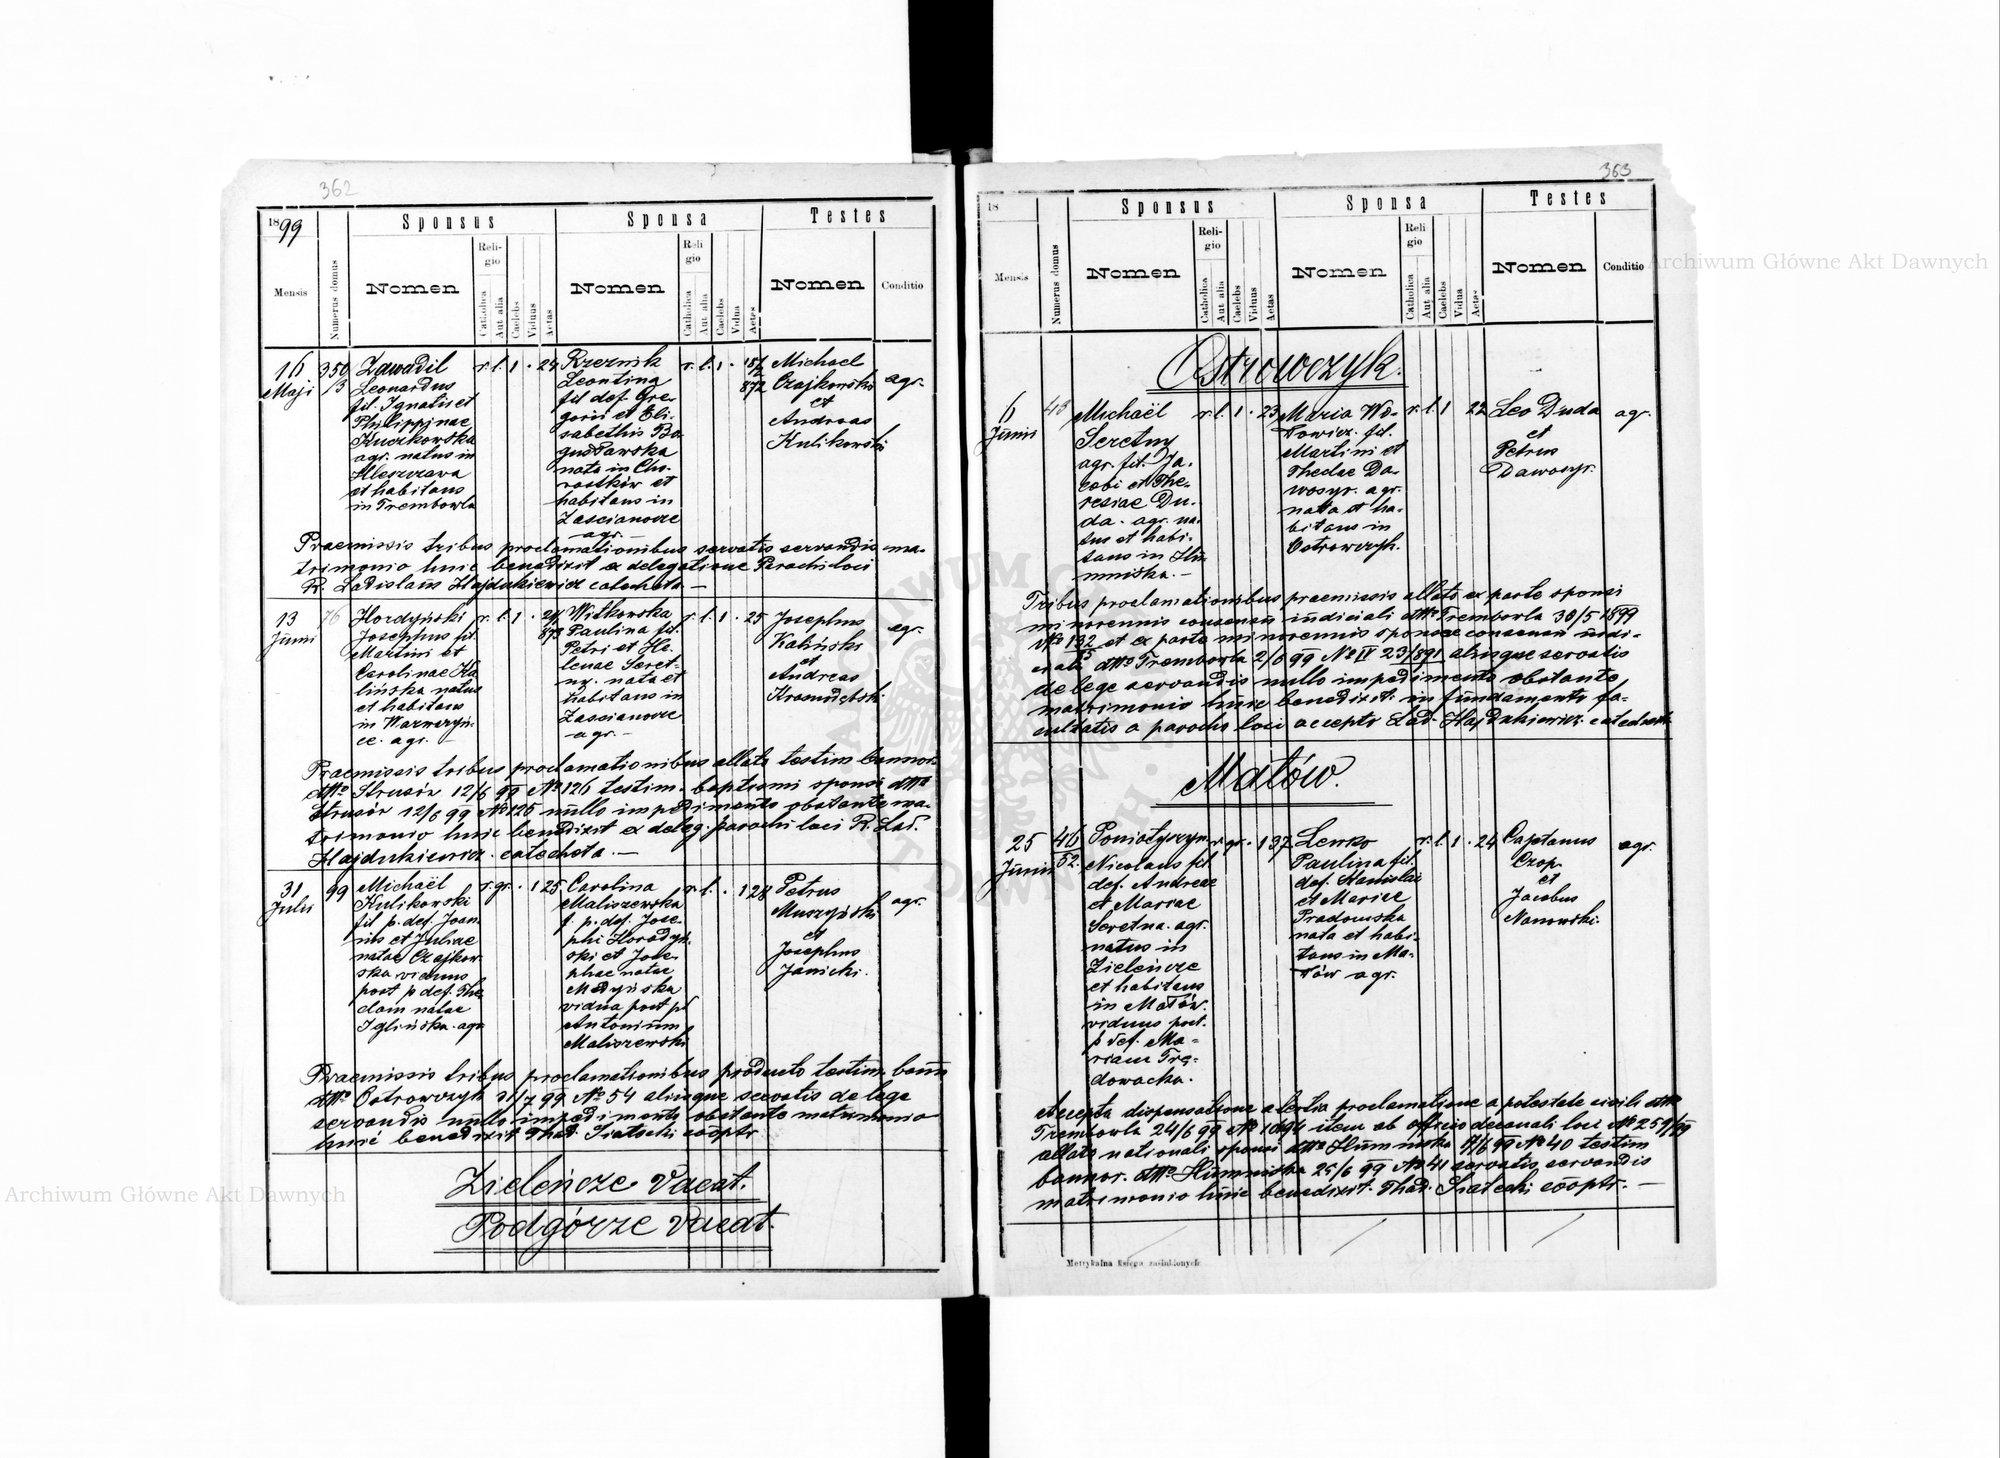 362
1899
Sponsus
Sponsa
Testes
Mensis
Numerus domus
Nomen
Religio
Catholica
Aut alia
Caelebs
Viduus
Aetas
Nomen
Religio
Catholica
Aut alia
Caelebs
Vidua
Aetas
Nomen
Conditio
16
Maji
350
13
Zawadil
Leonardus
fil. Ignatii et
Philippinae
Kuczkowska
agr. natus in
et habitans
in Trembowla
r. l. 1 . 24
Krzeznik
Leontina
fil def. Gre-
gorii et Eli-
sabethis Bo-
gusławska
nata in Cho-
rostków et
habitans in
Zascianocze
agr. —
r. l. 1 .
872
Michael
Czajkowski
et
Andreas
Kulikowski
agr.
Praemissis tribus proclamationibus servatis servandis ma-
trimonio huic benedixit ex delegatione Parochi loci
R. Ladislaus Hajdukiewicz catecheta —
13
Junii
76
Hordyński
Josephus fil.
Martini et
Carolinae Ka
lińska natus
et habitans
in Warwaryń-
ce. agr. —
r. l. 1 . 24
873
Witkowska
Paulina fil.
Petri et He-
lenae Seret-
ny. nata et
habitans in
Zascianocze
agr. —
r. l. 1 . 25
Josephus
Kaliński
et
Andreas
agr.
Praemissis tribus proclamationibus allato testim. bannor.
dtto Strusów 12/6 99 No 126 testim. baptismi sponsi dtto
Strusów 12/6 99 No 125 nullo impedimento obstante ma-
trimonio huic benedixit ex deleg. parochi loci R. Lad.
Hajdukiewicz. catecheta. —
31
Julii
99
Michaël
Kulikowski
fil p. def. Joan-
nis et Juliae
natae Czajkow-
ska viduus
post p def. The
clam natae
Iglińska. agr
r. gr. . 1 25
Carolina
Maliszewska
f. p. def. Jose-
phi Horodyń-
ski et Jose-
phae natae
Madyńska
vidua post pd
Antonium
Maliszewski
r. l. . 1 28
Petrus
Muszyński
et
Josephus
Janicki.
agr.
Praemissis tribus proclamationibus producto testim. bann
dtto Ostrowczyk 31/7 99 No 54 aliisque servatis de lege
servandis nullo impedimento obstante matrimonio
huic benedixit Thad. Siatecki cooptr
Zieleńcze vacat.
Podgórze vacat.
363
18
Sponsus
Sponsa
Testes
Mensis
Numerus domus
Nomen
Religio
Catholica
Aut alia
Caelebs
Viduus
Aetas
Nomen
Religio
Catholica
Aut alia
Caelebs
Vidua
Aetas
Nomen
Conditio
Ostrowczyk.
6
Junii
43
Michaël
Seretny
agr. fil. Ja-
cobi et The-
resiae Du-
da. agr. na-
tus et habi-
tans in Hu-
mniska. —
r. l. 1 . 23
Maria Wo-
towicz. fil.
Martini et
Theclae Da-
wosyr. agr.
nata et ha-
bitans in
Ostrowczyk.
r. l. 1 22
Leo Duda
et
Petrus
Dawosyr.
agr.
Tribus proclamationibus praemissis allato ex parte sponsi
minorennis consensu iudiciali dtto Trembowla 30/5 1899
No 132 et ex parte minorennis sponsae consensu iudi-
ciali dtto Trembowla 2/6 99 No IV 23/891 aliisque servatis
de lege servandis nullo impedimento obstante
matrimonio huic benedixit. in fundamento fa-
cultatis a parocho loci accepto Lad. Hajdukiewicz. catecheta
Małów.
25
Junii
46
52.
Poniatyszyn
Nicolaus fil
def. Andreae
et Mariae
Seretna. agr.
natus in
Zieleńcze
et habitans
in Małów.
viduus post.
p def. Ma-
riam Trę-
dowacka.
r. gr. . 1 37
Lenko
Paulina fil.
def. Stanislai
et Mariae
Pradomska
nata et habi-
tans in Ma-
łów agr.
r. l. 1 . 24
Cajetanus
Czop.
et
Jacobus
Nanowski.
agr.
Accepta dispensatione a tertia proclamatione a potestate civili dtto
Trembowla 24/6 99 No 10494 item ab officio decanali loci No 259/99
allato nationali sponsi dtto Humniska 17/6 99 No 40 testim
bannor. dtto Humniska 25/6 99 No 41 servatis servandis
matrimonio huic benedixit. Thad. Siatecki cooptr. —
Metrykalna księga zaślubionych
Archiwum Główne Akt Dawnych
Archiwum Główne Akt Dawnych